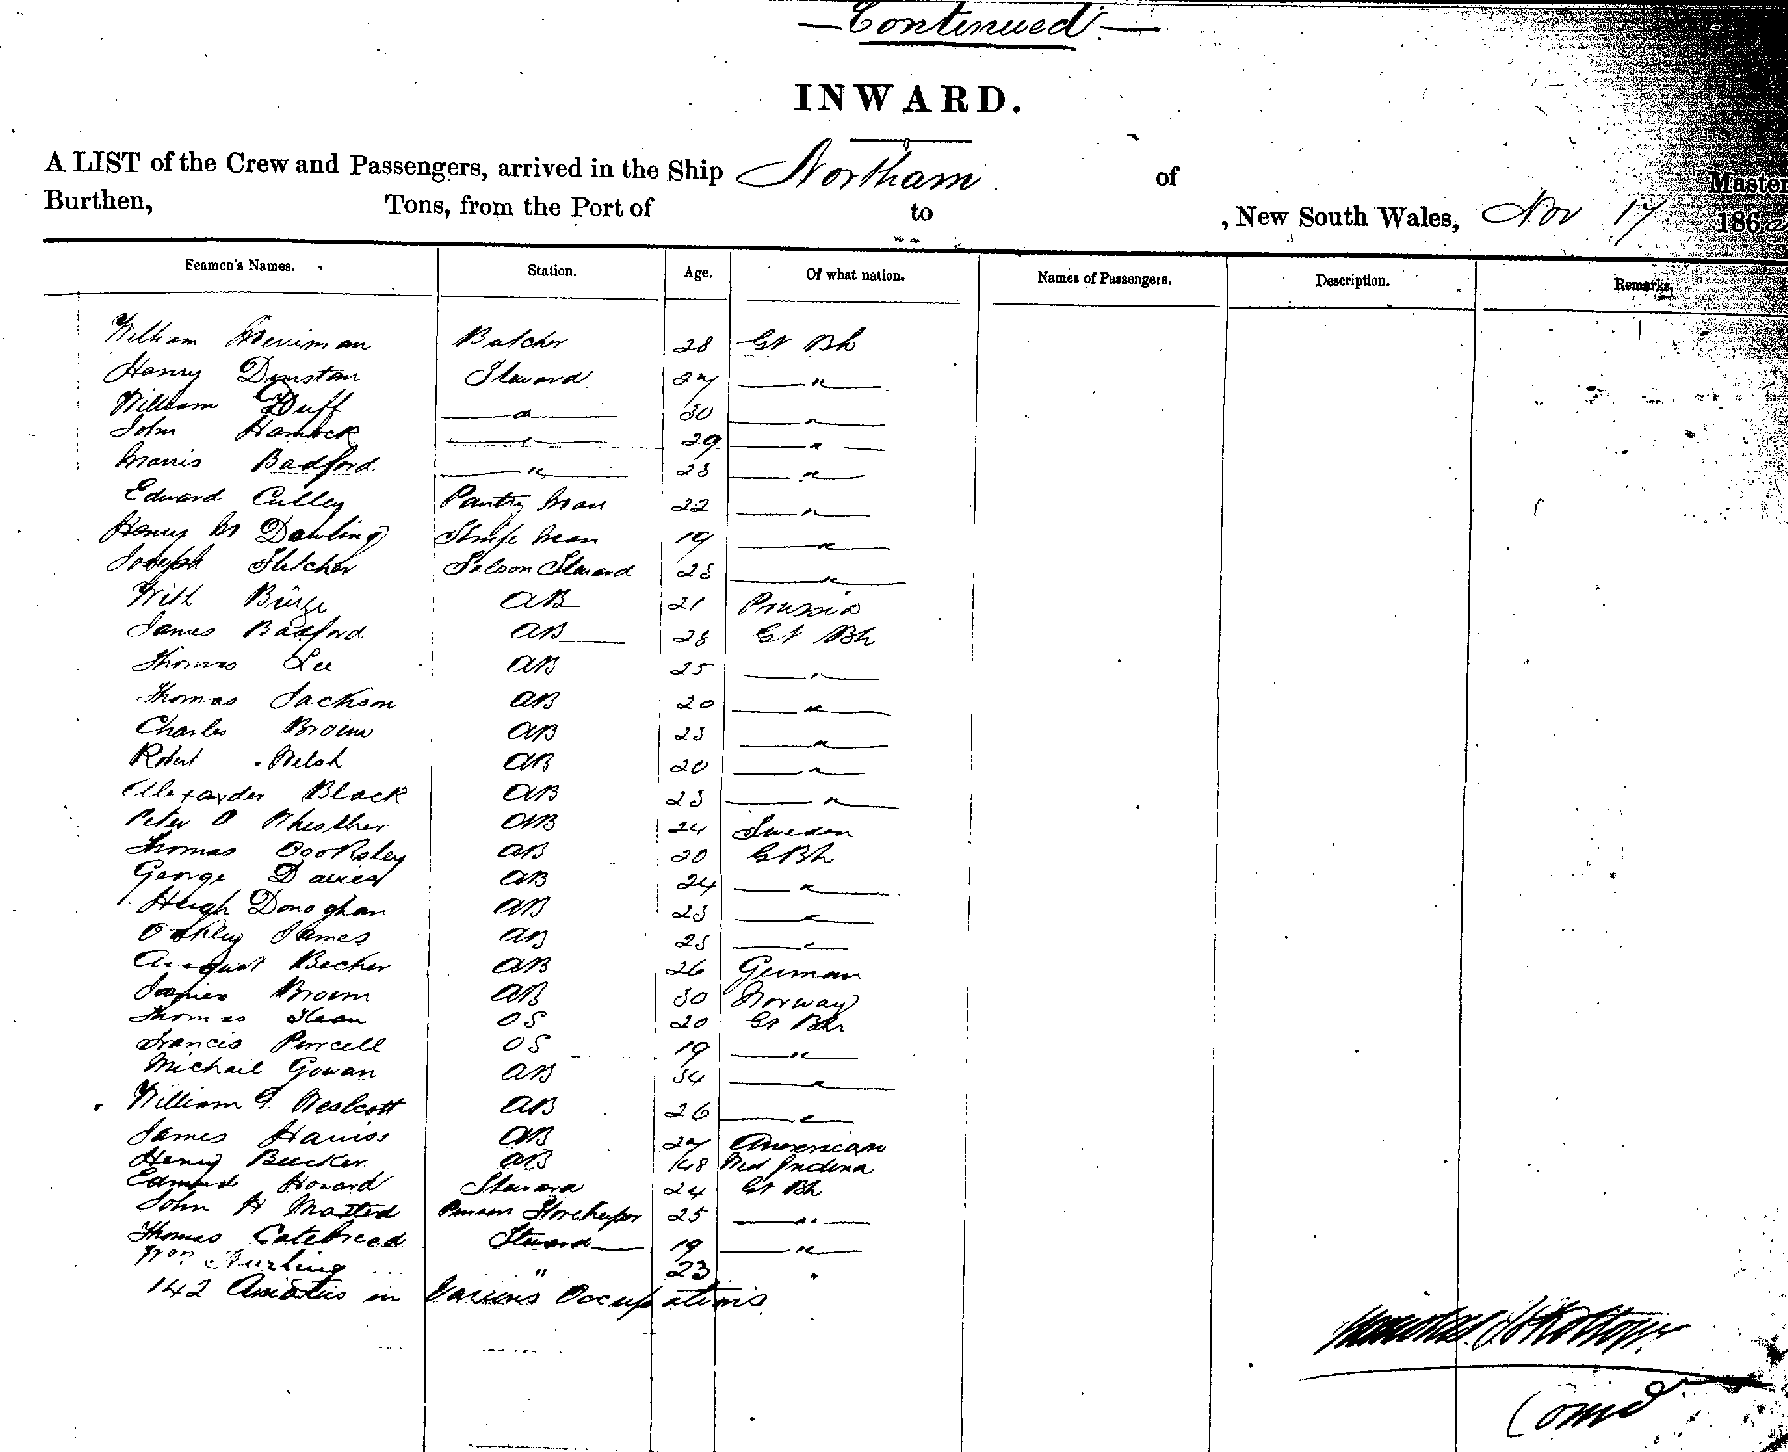 — Continued —
INWARD.
A LIST of the Crew and Passengers, arrived in the Ship Northam of Master
Burthen, Tons, from the Port of to , New South Wales, Nov 17 1862
Seamen's Names. Station. Age. Of what nation. Names of Passengers. Description. Remarks.
William Merriman Butcher 28 Gt Bn
Henry Dunstan Steward 27 — " —
William Duff — " — 30 — " —
John — " — 29 — " —
Morris Badford — " — 23 — " —
Edward Culley Pantry Man 22 — " —
Henry M Dowling man 19 — " —
Joseph Fletcher Saloon Steward 23 — " —
Will 21 Prussia
James Badford AB 28 Gt Bn
Thomas Lee AB 25 — " —
Thomas Jackson AB 20 — " —
Charles Brown AB 23 — " —
Robert Welsh AB 20 — " —
Alexander Black AB 23 — " —
Peter O AB 24 Sweden
Thomas AB 20 Gt Bn
George Davies AB 24 — " —
Hugh Donoghan AB 23 — " —
James AB 23 — " —
August Becker AB 26 German
James Brown AB 30 Norway
Thomas OS 20 Gt Bn
Francis Purcell OS 19 — " —
Michail Gowan AB 34 — " —
William G. Westcott AB 26 — " —
James Harriss AB 27 American
Henry Becker AB 48
Edmund Howard Steward 24 Gt Bn
John H Masted Storekeeper 25 — " —
Thomas Catebread Steward 19 — " —
Wm " 23 "
142 Asiatics in Various Occupations
Comd